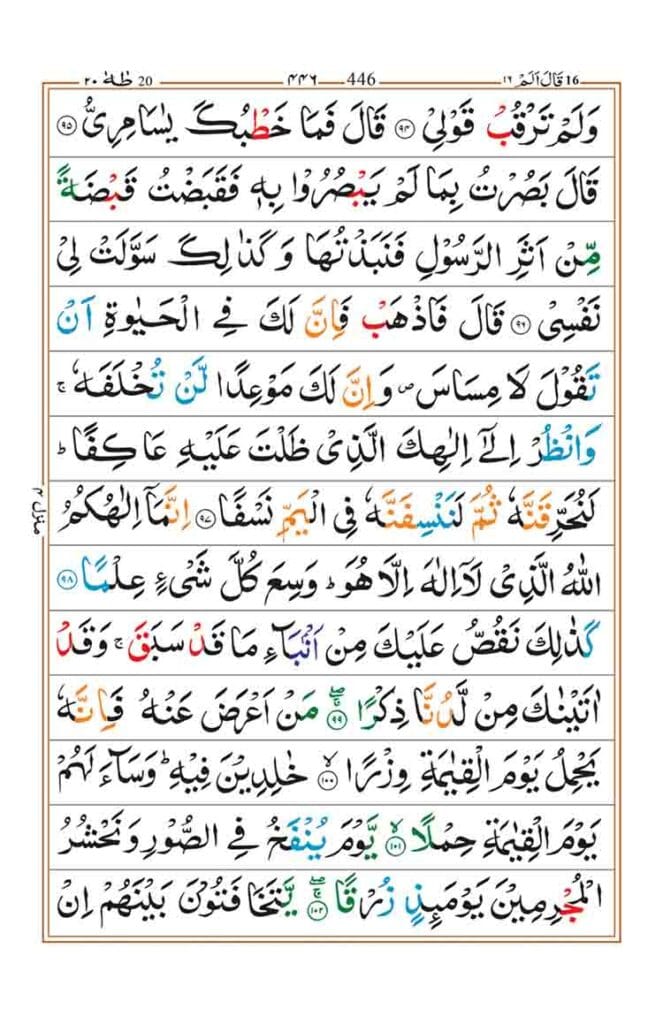 ١٦ قَالَ اَلَمْ 16 ــــ 446 ــــ ٤٤٦ ــــ 20 طٰهٰ ٢٠
وَلَمْ تَرْقُبْ قَوْلِیْ ﴿۹۴﴾ قَالَ فَمَا خَطْبُكَ یٰسَامِرِیُّ ﴿۹۵﴾
قَالَ بَصُرْتُ بِمَا لَمْ یَبْصُرُوْا بِهٖ فَقَبَضْتُ قَبْضَةً
مِّنْ اَثَرِ الرَّسُوْلِ فَنَبَذْتُهَا وَكَذٰلِكَ سَوَّلَتْ لِیْ
نَفْسِیْ ﴿۹۶﴾ قَالَ فَاذْهَبْ فَاِنَّ لَكَ فِی الْحَیٰوةِ اَنْ
تَقُوْلَ لَا مِسَاسَ ۪ وَاِنَّ لَكَ مَوْعِدًا لَّنْ تُخْلَفَهٗ ۚ
وَانْظُرْ اِلٰۤی اِلٰهِكَ الَّذِیْ ظَلْتَ عَلَیْهِ عَاكِفًا ؕ
لَنُحَرِّقَنَّهٗ ثُمَّ لَنَنْسِفَنَّهٗ فِی الْیَمِّ نَسْفًا ﴿۹۷﴾ اِنَّمَاۤ اِلٰهُكُمُ
اللّٰهُ الَّذِیْ لَاۤ اِلٰهَ اِلَّا هُوَ ؕ وَسِعَ كُلَّ شَیْءٍ عِلْمًا ﴿۹۸﴾
كَذٰلِكَ نَقُصُّ عَلَیْكَ مِنْ اَنْۢبَآءِ مَا قَدْ سَبَقَ ۚ وَقَدْ
اٰتَیْنٰكَ مِنْ لَّدُنَّا ذِكْرًا ﴿۹۹﴾ مَنْ اَعْرَضَ عَنْهُ فَاِنَّهٗ
یَحْمِلُ یَوْمَ الْقِیٰمَةِ وِزْرًا ﴿۱۰۰﴾ خٰلِدِیْنَ فِیْهِ ؕ وَسَآءَ لَهُمْ
یَوْمَ الْقِیٰمَةِ حِمْلًا ﴿۱۰۱﴾ یَّوْمَ یُنْفَخُ فِی الصُّوْرِ وَنَحْشُرُ
الْمُجْرِمِیْنَ یَوْمَئِذٍ زُرْقًا ﴿۱۰۲﴾ یَّتَخَافَتُوْنَ بَیْنَهُمْ اِنْ
منزل ٤